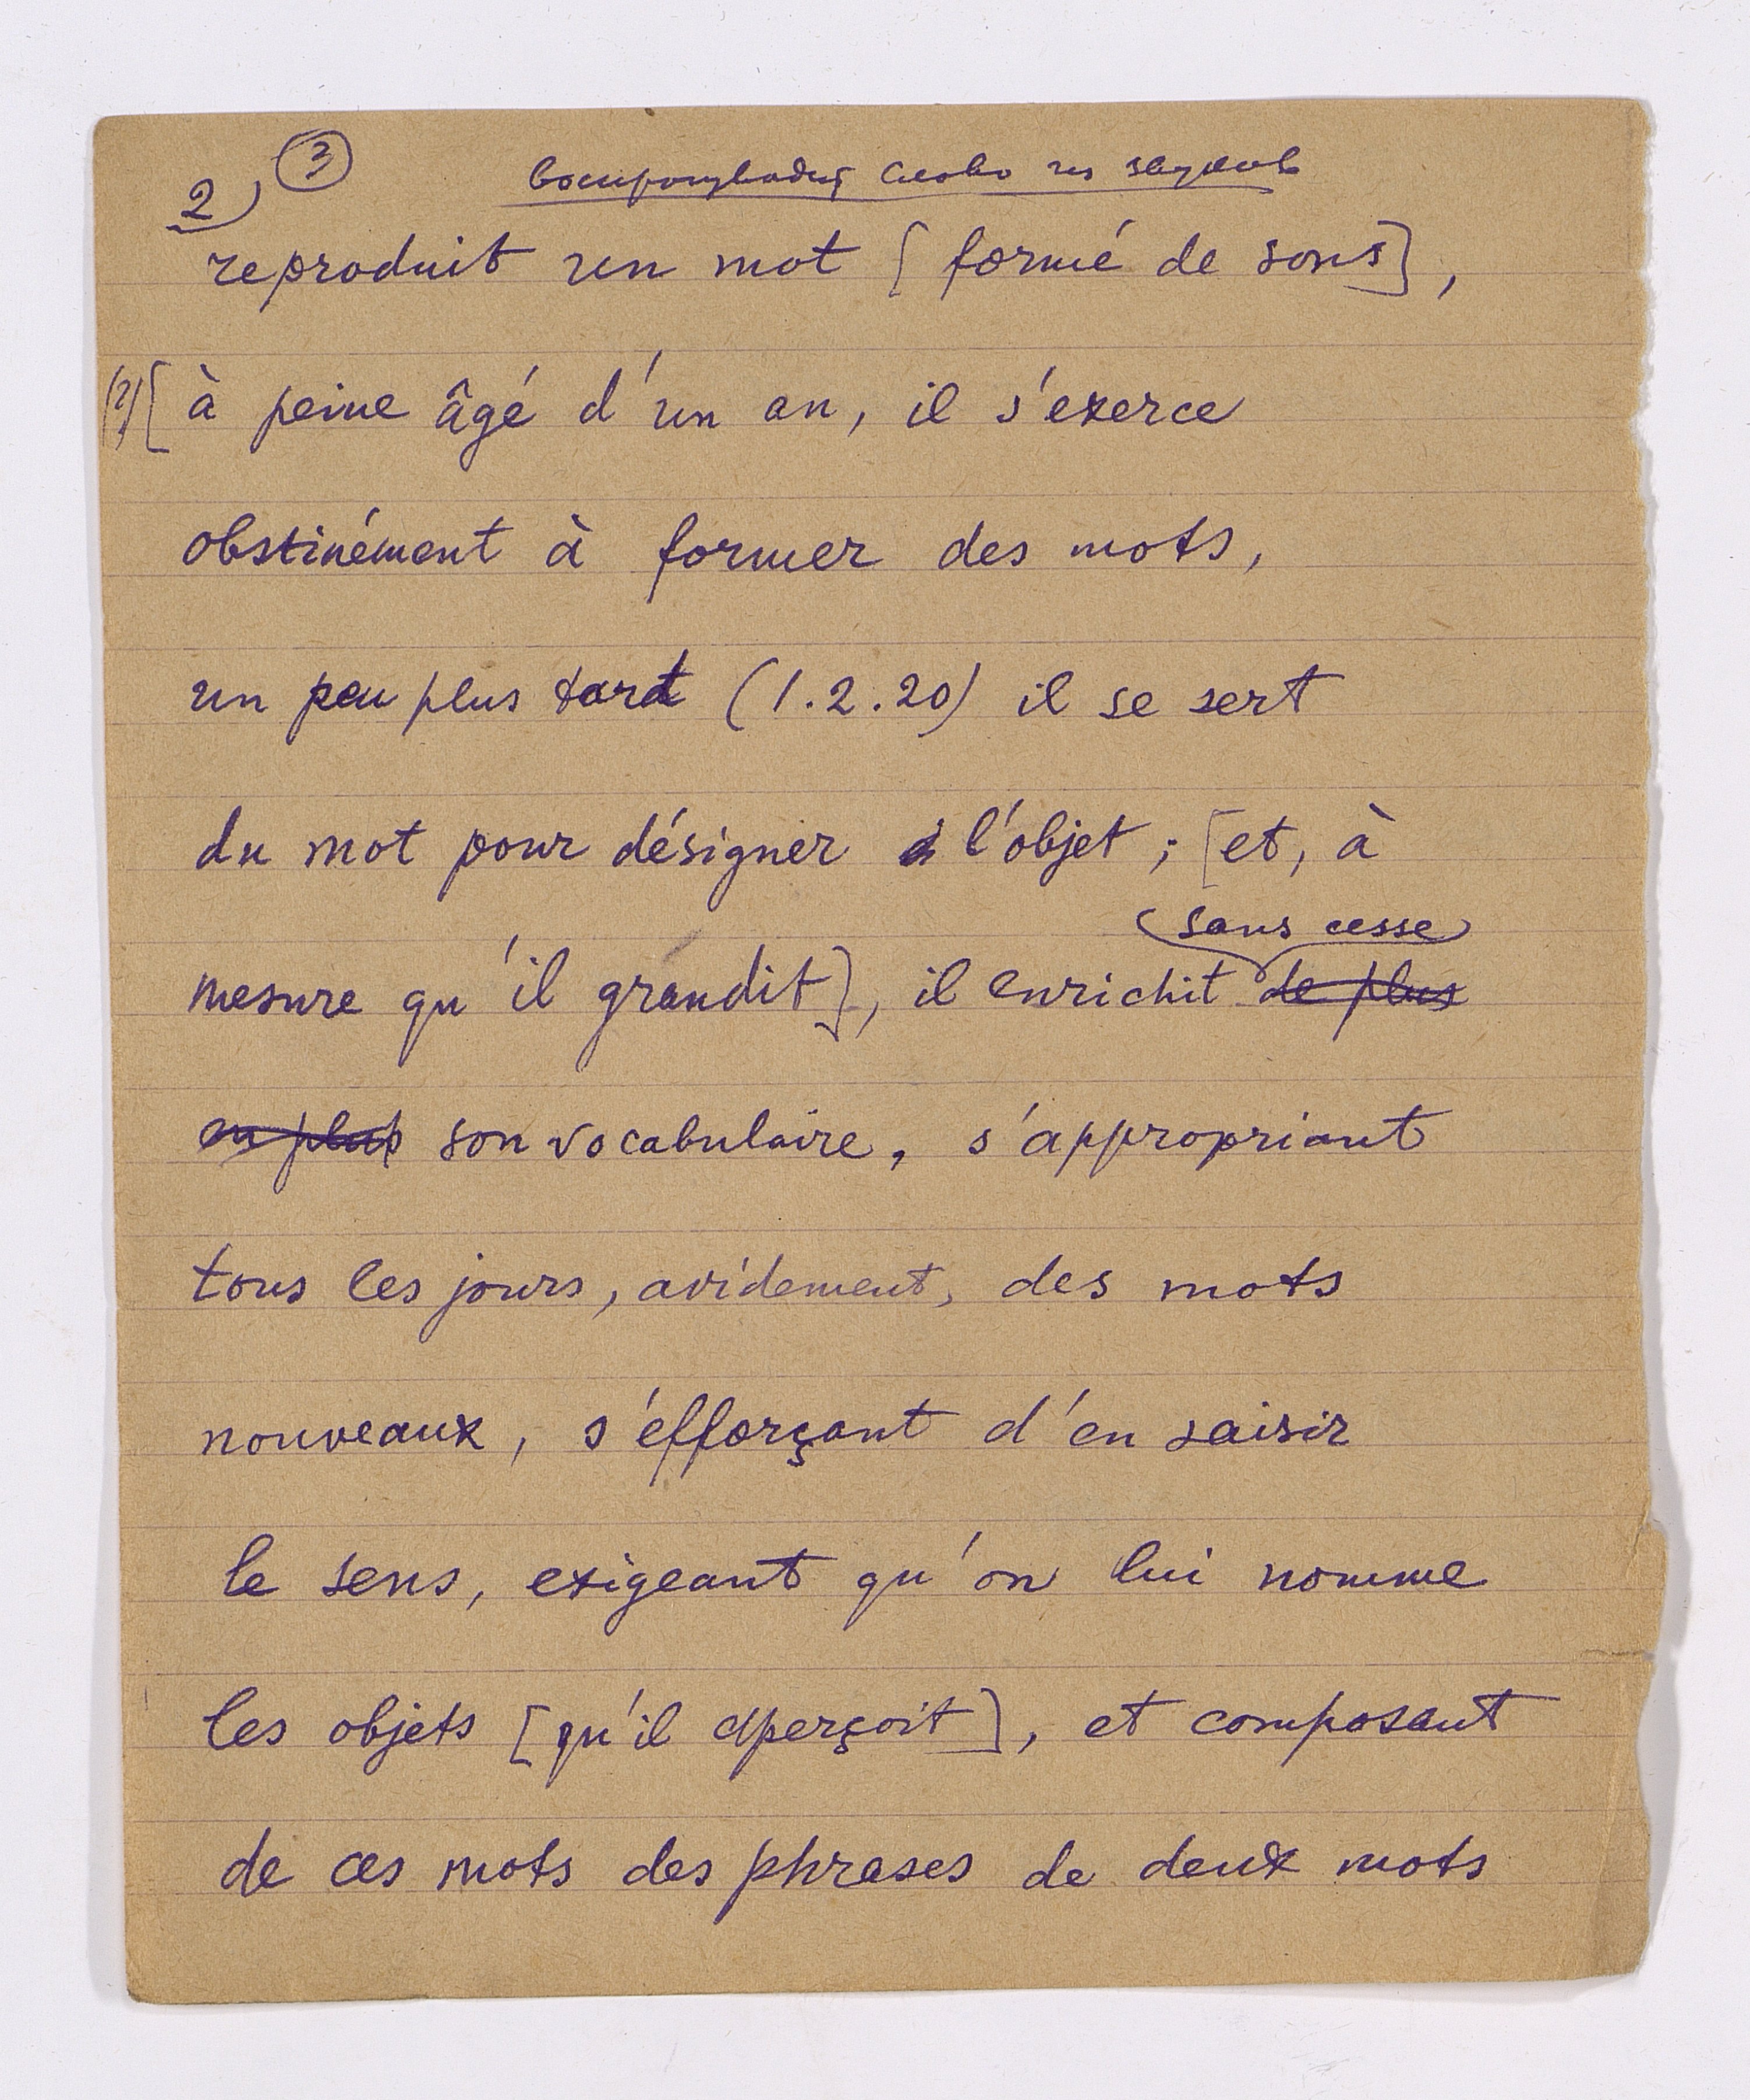 2) 3 воспроизводит слово из звуков
reproduit un mot [formé de sons],
(2) [à peine âgé d'un an, il s'exerce
obstinément à former des mots,
un peu plus tard (1.2.20) il se sert
du mot pour désigner l'objet ; [et, à
sans cesse
mesure qu'il grandit], il enrichit de plus
en plus son vocabulaire, s'appropriant
tous les jours, avidement, des mots
nouveaux, s'efforçant d'en saisir
le sens, exigeant qu'on lui nomme
les objets [qu'il aperçoit], et composant
de ces mots des phrases de deux mots